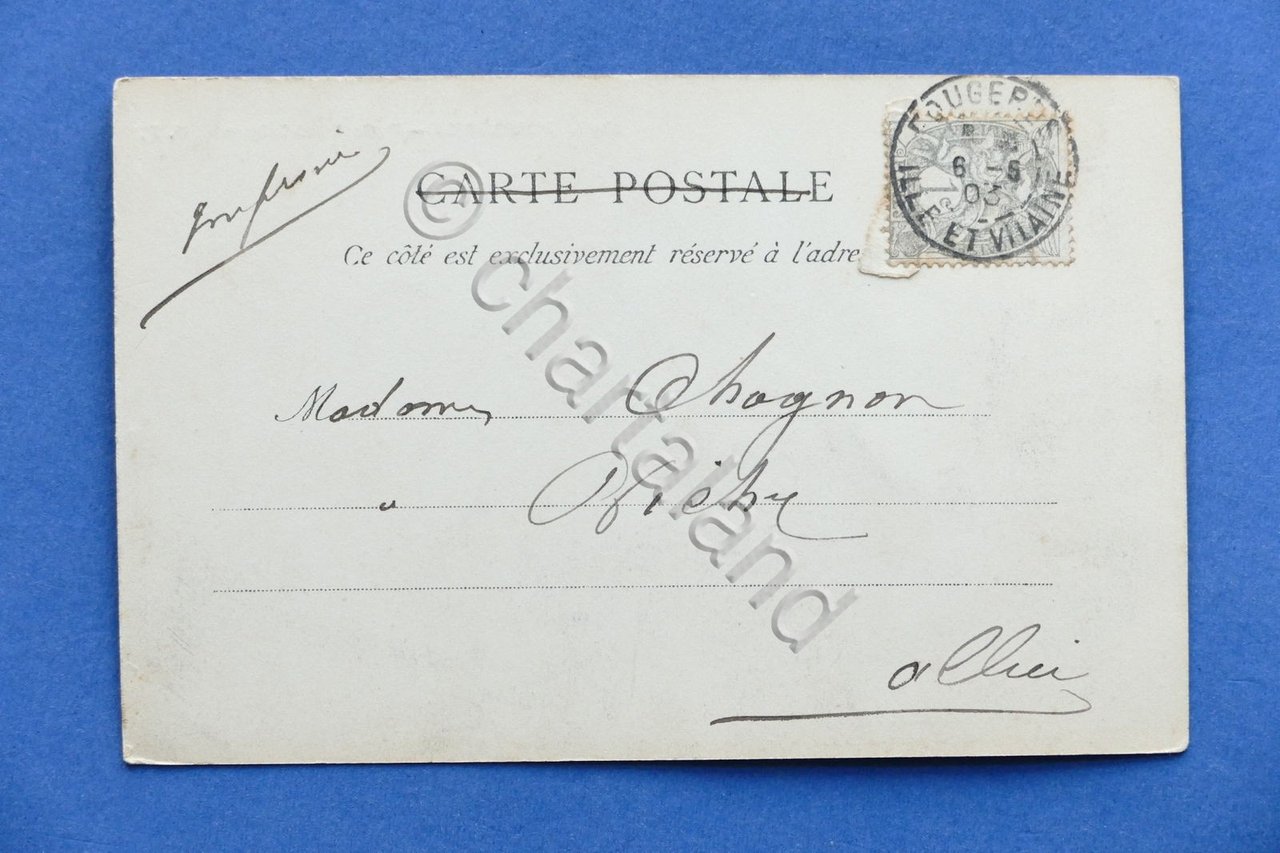 Imprimé
CARTE POSTALE
Ce côté est exclusivement réservé à l'adre
FOUGERES
6 -5
03
ILLE ET VILAINE
1c
Madame Chagnon
à
Allier
© chartaland